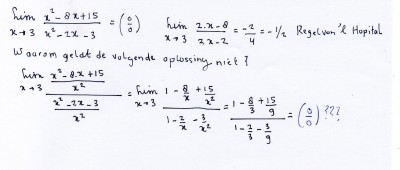 lim x→3 (x²-8x+15)/(x²-2x-3) = (0/0)   lim x→3 (2.x-8)/(2x-2) = -2/4 = -1/2 Regel van 'l Hopital
Waarom geldt de volgende oplossing niet?
lim x→3 ((x²-8.x+15)/x²)/((x²-2x-3)/x²) = lim x→3 (1-8/x+15/x²)/(1-2/x-3/x²) = (1-8/3+15/9)/(1-2/3-3/9) = (0/0) ???